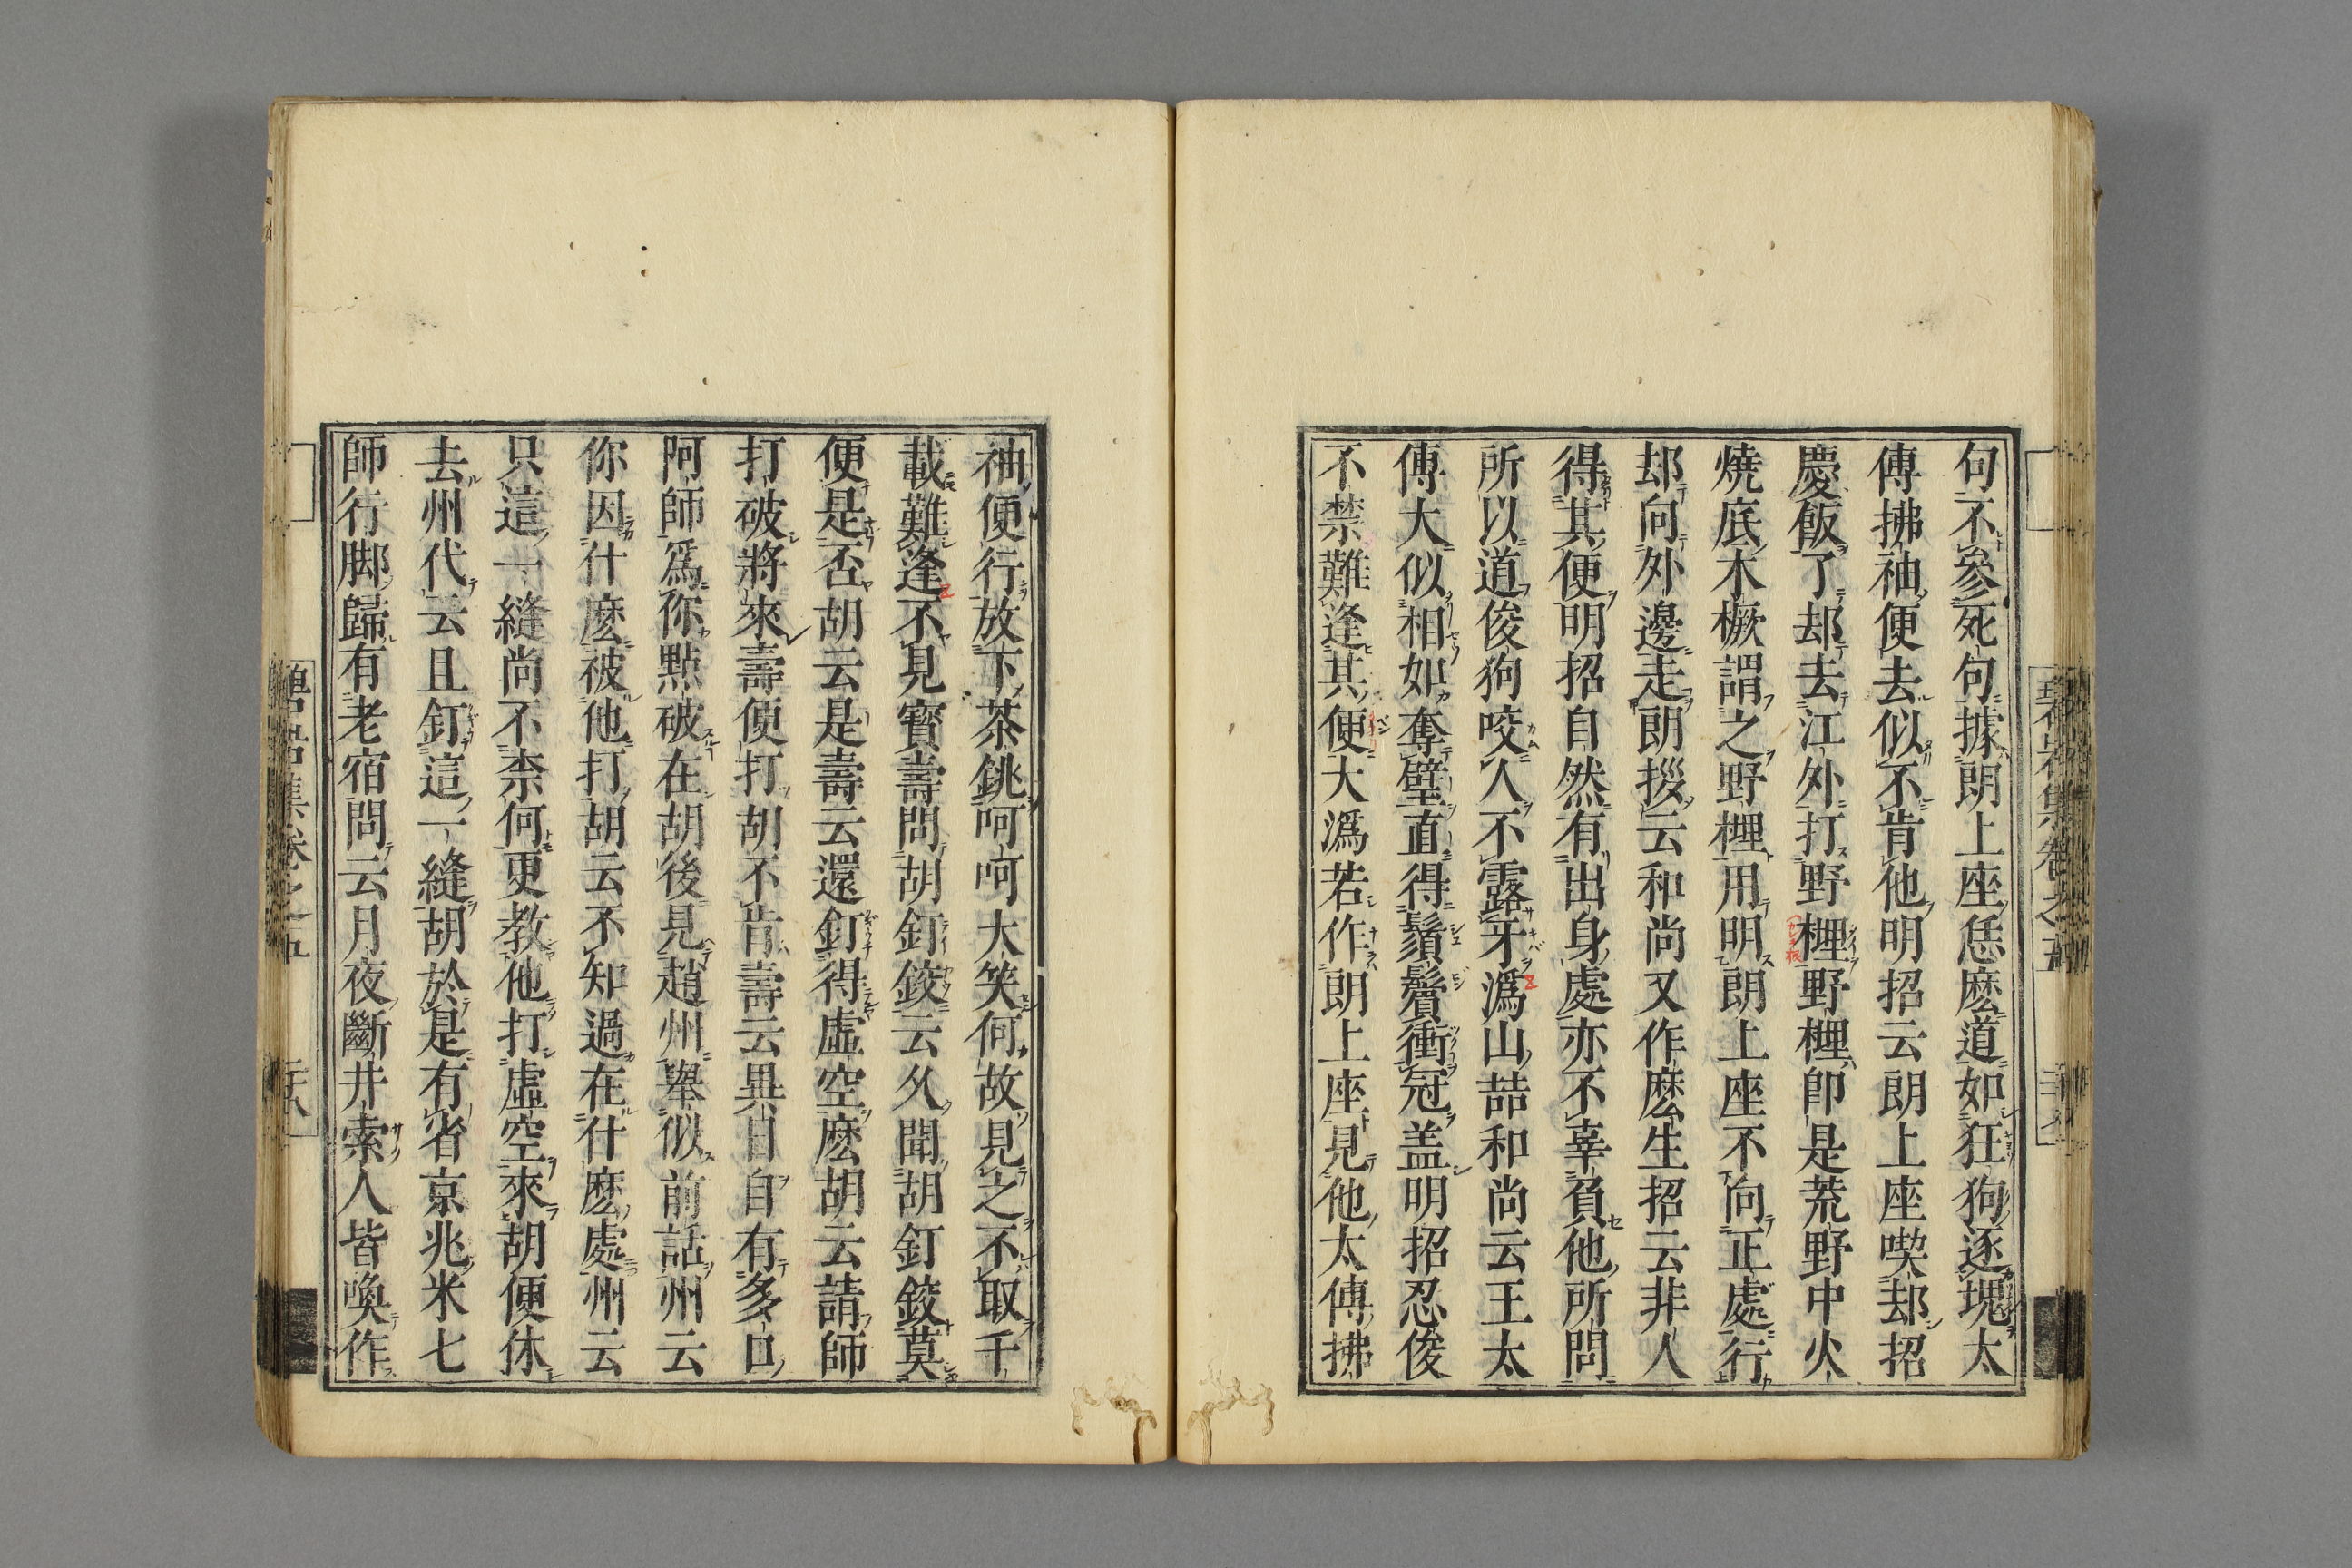 句不參死句據朗上座恁麽道如狂狗逐塊太
傅拂袖便去似不肯他明招云朗上座喫却招
慶飯了却去江外打野榸野榸即是荒野中火
燒底木橛謂之野榸用明朗上座不向正處行
却向外邊走朗拶云和尚又作麽生招云非人
得其便明招自然有出身處亦不辜負他所問
所以道俊狗咬人不露牙潙山喆和尚云王太
傅大似相如奪璧直得鬚鬢衝冠盖明招忍俊
不禁難逢其便大潙若作朗上座見他太傅拂
袖便行放下茶銚呵呵大笑何故見之不取千
載難逢不見寶壽問胡釘鉸云久聞胡釘鉸莫
便是否胡云是壽云還釘得虛空麽胡云請師
打破將來壽便打胡不肯壽云異日自有多口
阿師爲你點破在胡後見趙州舉似前話州云
你因什麽被他打胡云不知過在什麽處州云
只這一縫尚不柰何更教他打虛空來胡便休
去州代云且釘這一縫胡於是有省京兆米七
師行脚歸有老宿問云月夜斷井索人皆喚作
碧岩集卷之五